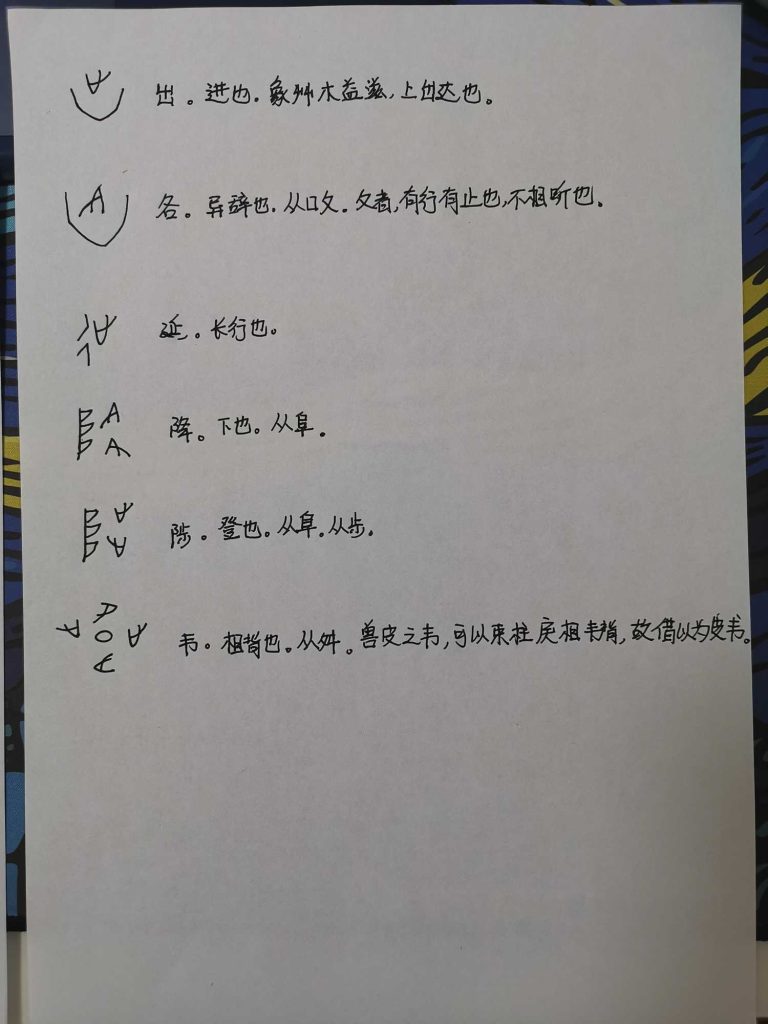 出。进也.象艸木益滋,上出达也。
各。异辞也.从口夂。夂者,有行有止也,不相听也.
延。长行也。
降。下也。从阜.
陟。登也。从阜.从步.
韦。相背也。从舛。兽皮之韦,可以束枉戾相韦背,故借以为皮韦.